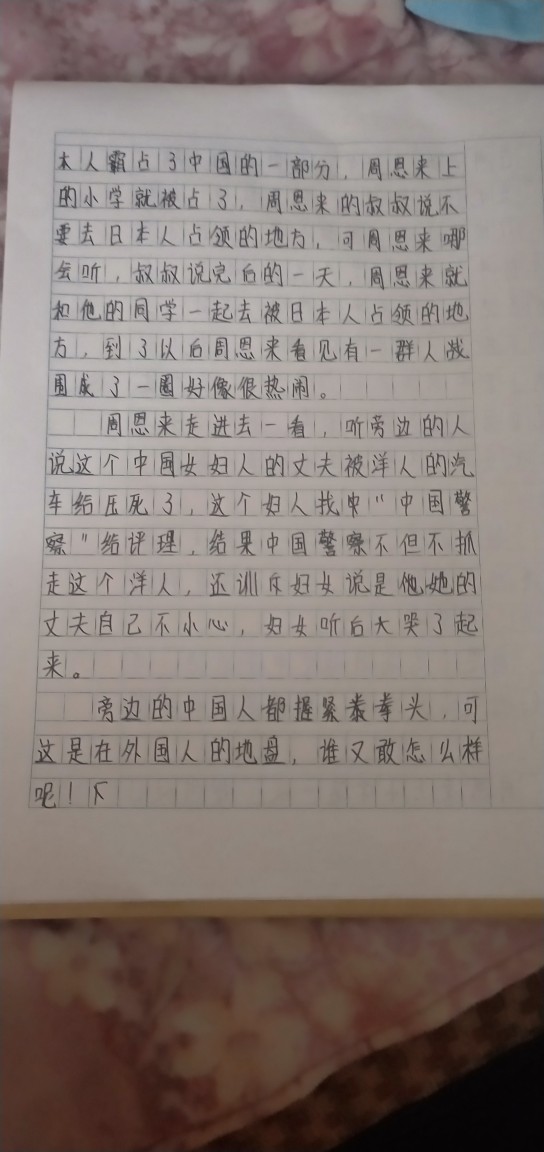 本人霸占了中国的一部分，周恩来上
的小学就被占了，周恩来的叔叔说不
要去日本人占领的地方，可周恩来哪
会听，叔叔说完后的一天，周恩来就
和他的同学一起去被日本人占领的地
方，到了以后周恩来看见有一群人战
围成了一圈好像很热闹。
周恩来走进去一看，听旁边的人
说这个中国女妇人的丈夫被洋人的汽
车给压死了，这个妇人找中“中国警
察”给评理，结果中国警察不但不抓
走这个洋人，还训斥妇女说是他她的
丈夫自己不小心，妇女听后大哭了起
来。
旁边的中国人都握紧拳头，可
这是在外国人的地盘，谁又敢怎么样
呢！